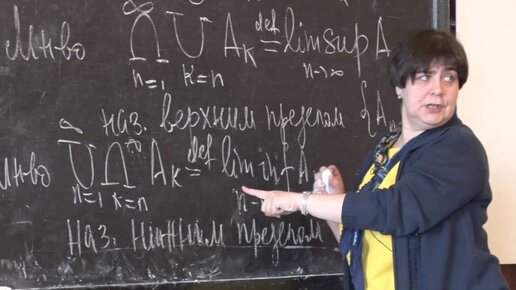 Мн-во ∞ ⋂ n=1 ∞ ⋃ k=n Aₖ def= lim sup A n→∞
наз. верхним пределом {A
Мн-во ∞ ⋃ n=1 ∞ ⋂ k=n Aₖ def= lim inf A n
наз. нижним пределом